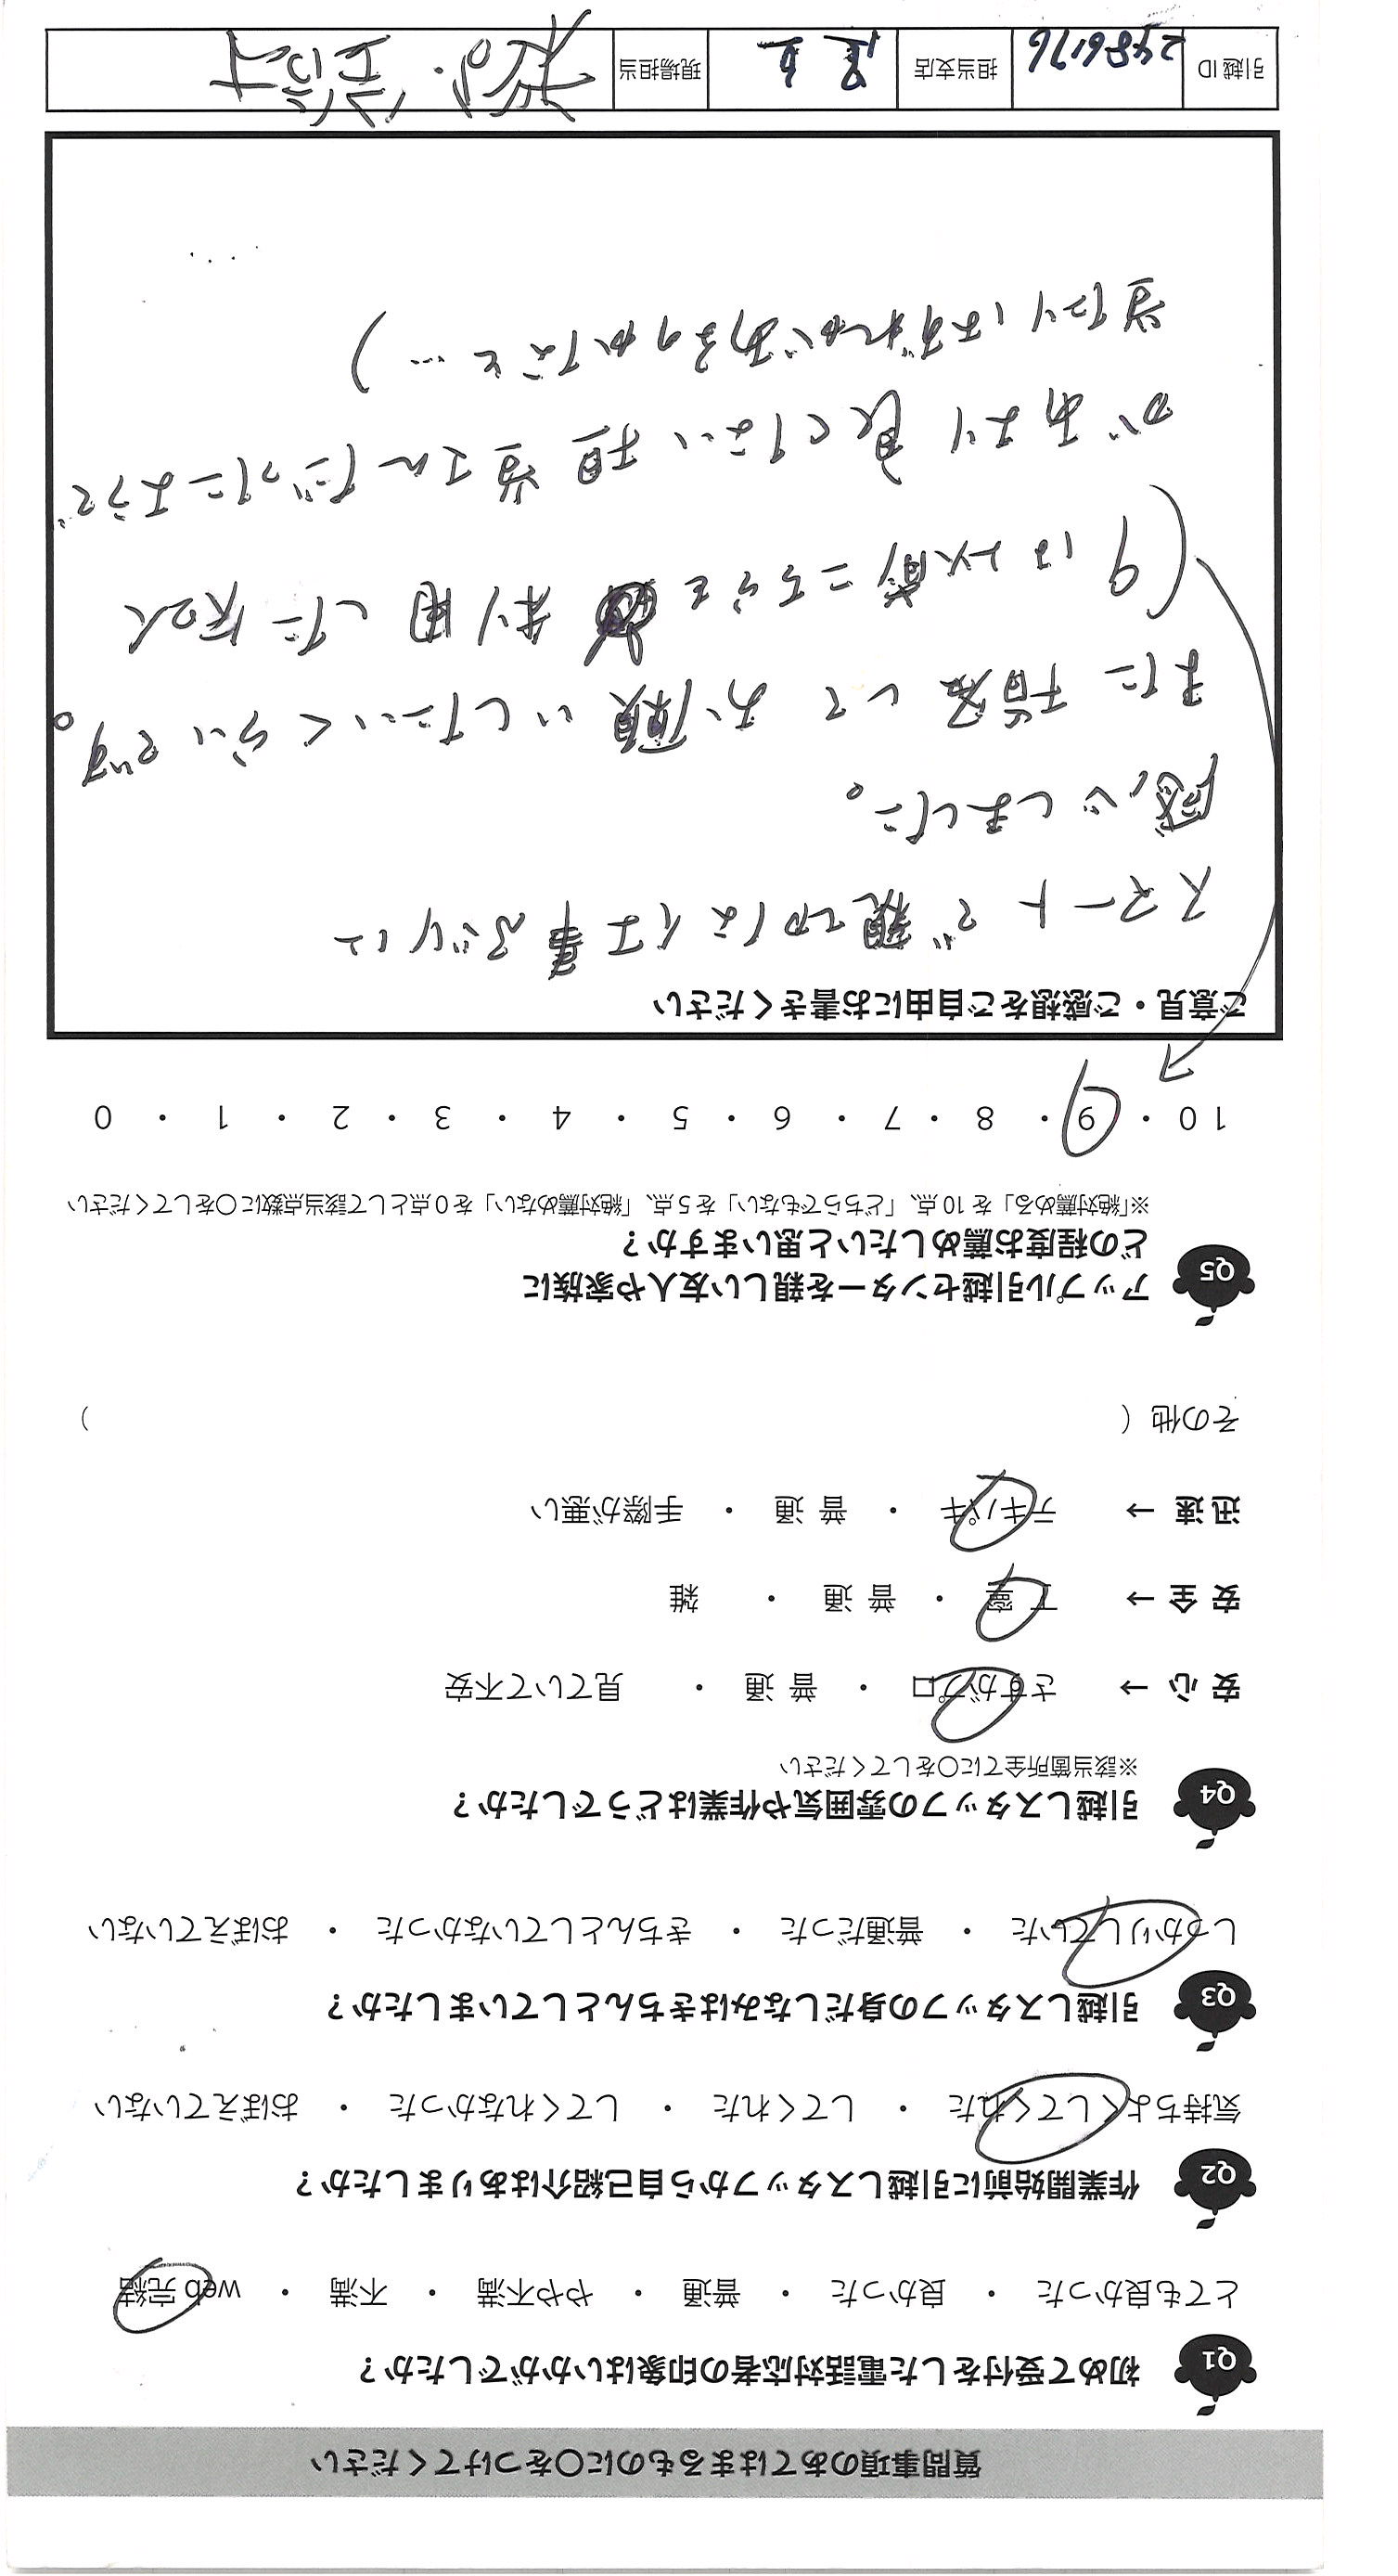 質問事項のあてはまるものに〇をつけてください
Q1 初めて受付をした電話対応者の印象はいかがでしたか？
とても良かった ・ 良かった ・ 普通 ・ やや不満 ・ 不満 ・ web 完結
Q2 作業開始前に引越しスタッフから自己紹介はありましたか？
気持ちよくしてくれた ・ してくれた ・ してくれなかった ・ おぼえていない
Q3 引越しスタッフの身だしなみはきちんとしていましたか？
しっかりしていた ・ 普通だった ・ きちんとしていなかった ・ おぼえていない
Q4 引越しスタッフの雰囲気や作業はどうでしたか？
※該当箇所全てに〇をしてください
安 心 → さすがプロ ・ 普 通 ・ 見ていて不安
安 全 → 丁 寧 ・ 普 通 ・ 雑
迅 速 → テキパキ ・ 普 通 ・ 手際が悪い
その他（ ）
Q5 アップル引越センターを親しい友人や家族に
どの程度お薦めしたいと思いますか？
※「絶対薦める」を 10 点、「どちらでもない」を 5 点、「絶対薦めない」を 0 点として該当点数に〇をしてください
10 ・ 9 ・ 8 ・ 7 ・ 6 ・ 5 ・ 4 ・ 3 ・ 2 ・ 1 ・ 0
ご意見・ご感想をご自由にお書きください
スマートで親切な仕事ぶりに
感心しました。
また指名してお願いしたいくらいです。
(9は以前こちらを利用した知人
があまり良くない担当さんだったようで
当たりはずれがあるのかなと…)
引越 ID 2486176 担当支店 現場担当